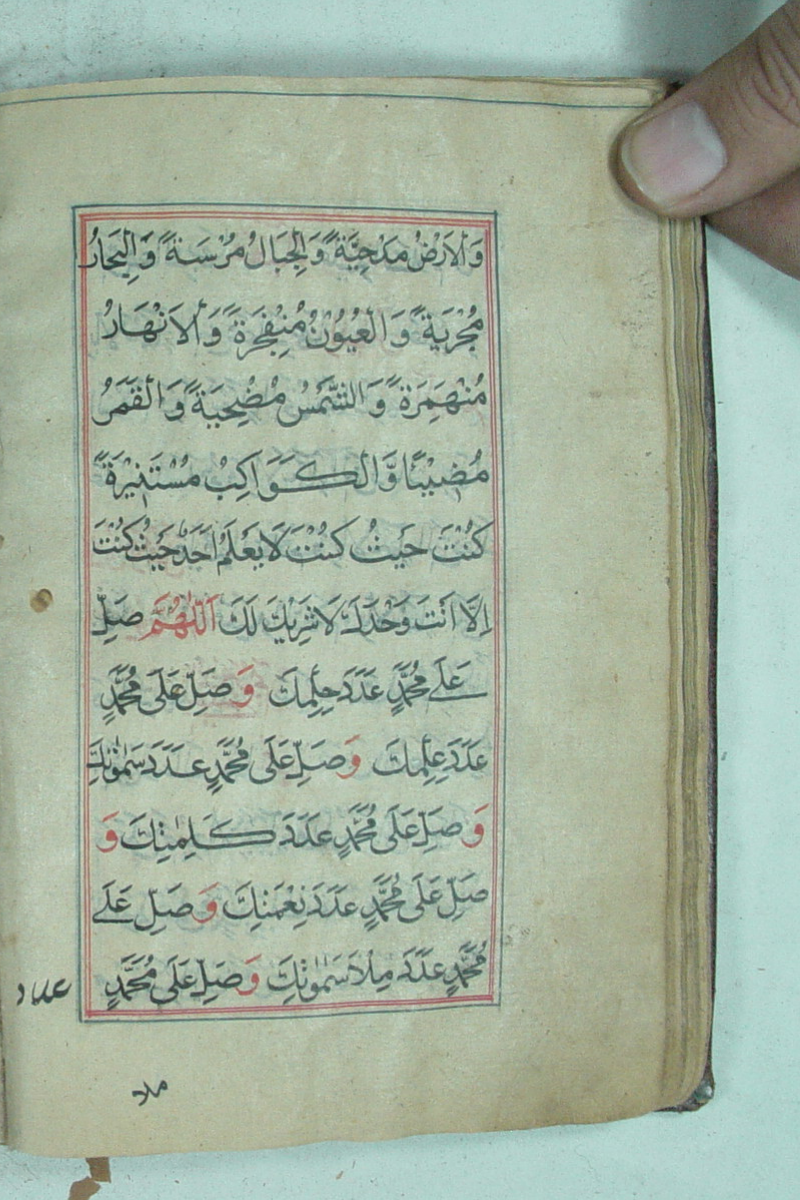 وَالْاَرْضُ مَدْحِيَّةً وَالْجِبَالُ مُرْسَتةً وَالْبِحَارُ
مُجْرِيَةً وَالْعُيُوْنُ مُنْفَجِرَةً وَالْاَنْهَارُ
مُنْهَمِرَةً وَالشَّمْسُ مُضْحِيَةً وَالْقَمَرُ
مُضِيْئًا وَّالْكَوَاكِبُ مُسْتَنِيْرَةً
كُنْتَ حَيْثُ كُنْتَ لَا يَعْلَمُ اَحَدٌ حَيْثُ كُنْتَ
اِلَّا اَنْتَ وَحْدَكَ لَا شَرِيْكَ لَكَ اَللّٰهُمَّ صَلِّ
عَلٰے مُحَمَّدٍ عَدَدَ حِلْمِكَ وَصَلِّ عَلَى مُحَمَّدٍ
عَدَدَ عِلْمِكَ وَصَلِّ عَلَى مُحَمَّدٍ عَدَدَ سَمٰوٰتِكَ
وَصَلِّ عَلَى مُحَمَّدٍ عَدَدَ كَلِمٰتِكَ وَ
صَلِّ عَلَى مُحَمَّدٍ عَدَدَ نِعْمَتِكَ وَصَلِّ عَلَے
مُحَمَّدٍ عَدَدَ مِلْاَ سَمٰوٰتِكَ وَصَلِّ عَلَى مُحَمَّدٍ
عدد
ملا